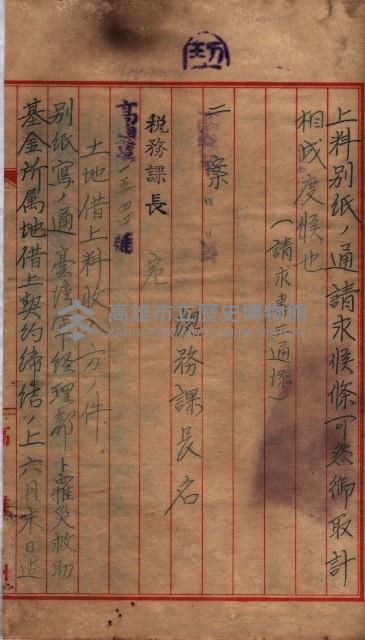 上料別紙ノ通請求候條可然御取計
相成度候也
(請求書 通添)
二案
總務課長名
税務課長 宛
高 第一五四四號
土地借上料收 方ノ件
別紙寫ノ通臺灣軍經理部ト罹災救助
基金所属地借上契約締結ノ上六月末日迄
高雄市立歷史博物館